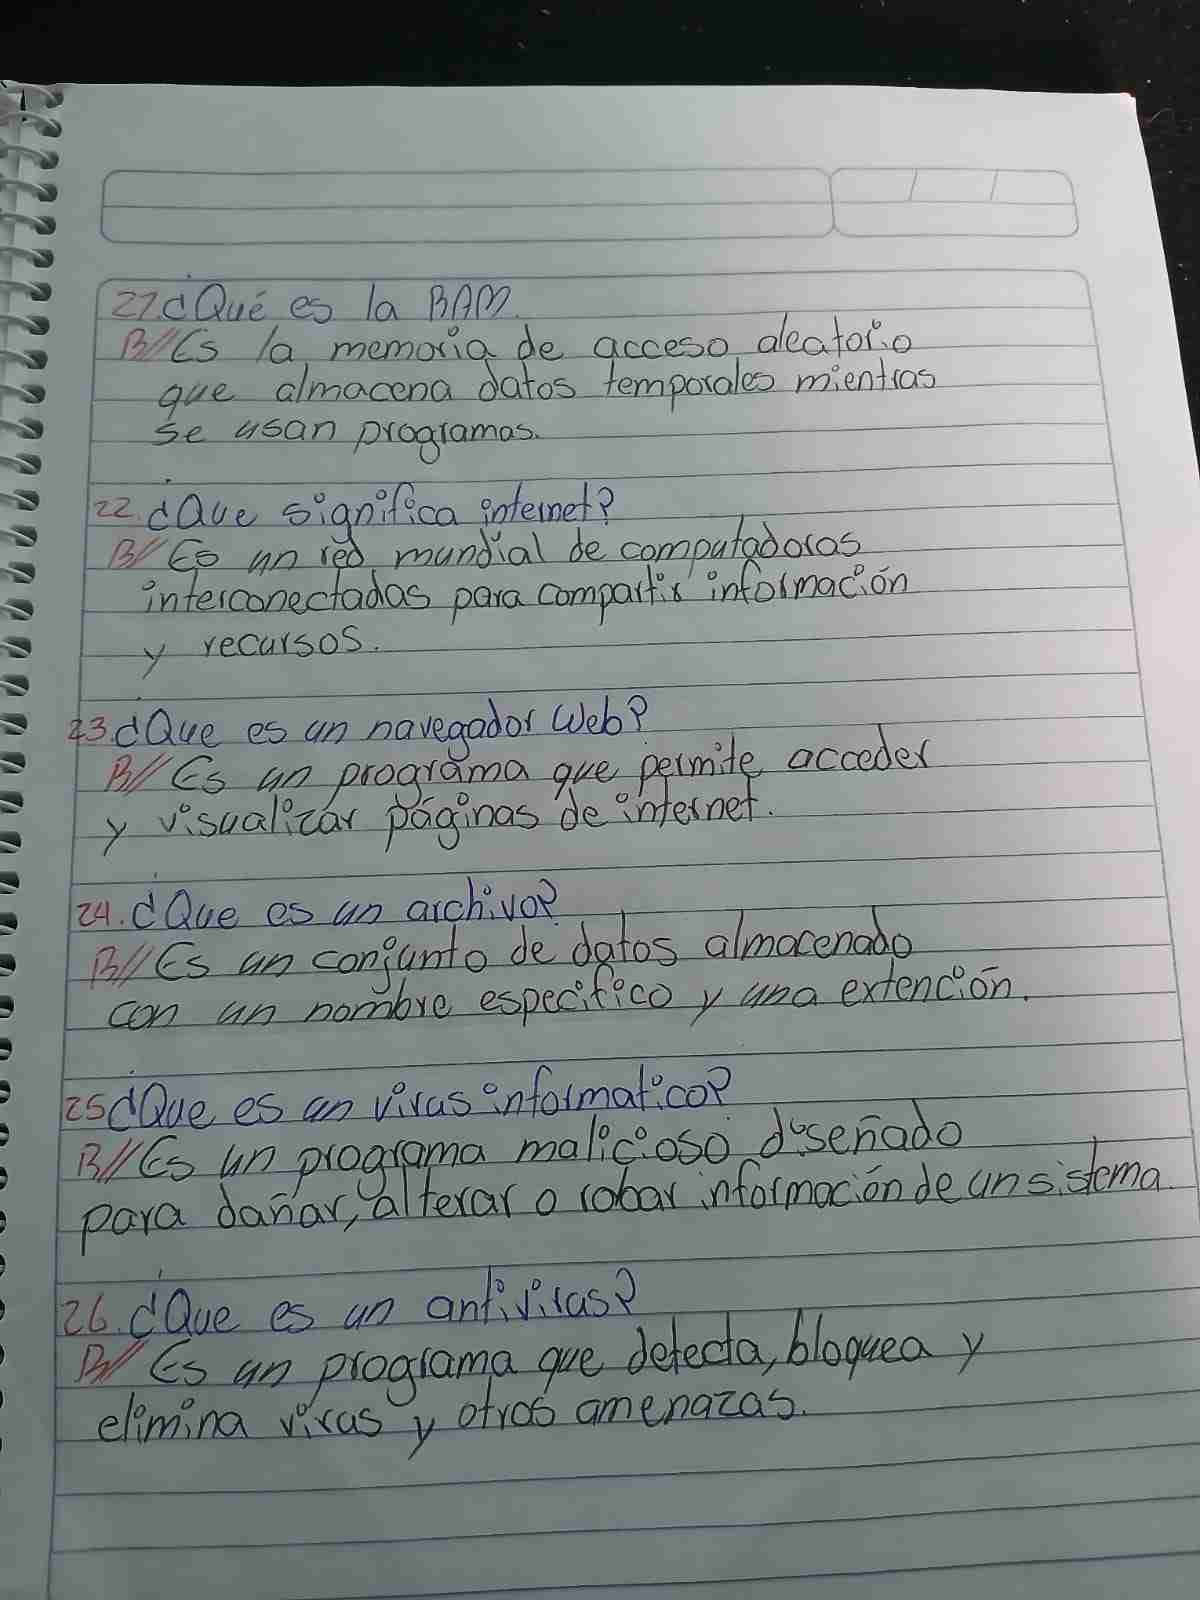 21. ¿Qué es la RAM.
R// Es la memoria de acceso aleatorio
que almacena datos temporales mientras
se usan programas.
22. ¿Que significa internet?
R// Es un red mundial de computadoras
interconectadas para compartir información
y recursos.
23. ¿Que es un navegador Web?
R// Es un programa que permite acceder
y visualizar páginas de internet.
24. ¿Que es un archivo?
R// Es un conjunto de datos almacenado
con un nombre especifico y una extención.
25 ¿Que es un virus informatico?
R// Es un programa malicioso diseñado
para dañar, alterar o robar información de un sistema.
26. ¿Que es un antivirus?
R// Es un programa que detecta, bloquea y
elimina virus y otros amenazas.